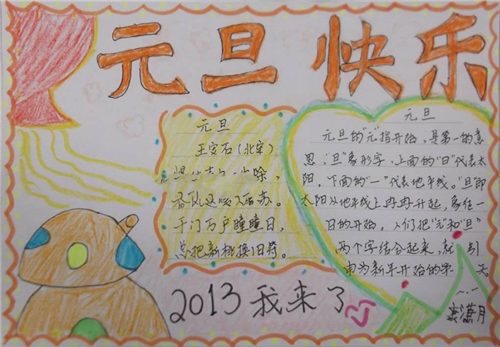 元旦快乐
元旦
王安石(北宋)
千门万户曈曈日,
总把新桃换旧符。
元旦
元旦的"元"指开始,是第一的意
思,"旦"象形字,上面的"日"代表太
阳,下面的"一"代表地平线。"旦即
太阳从地平线上冉冉升起,象征一
日的开始,人们把"元"和"旦"
两个字结合起来,就引
为新年开始的第 天
2013我来了